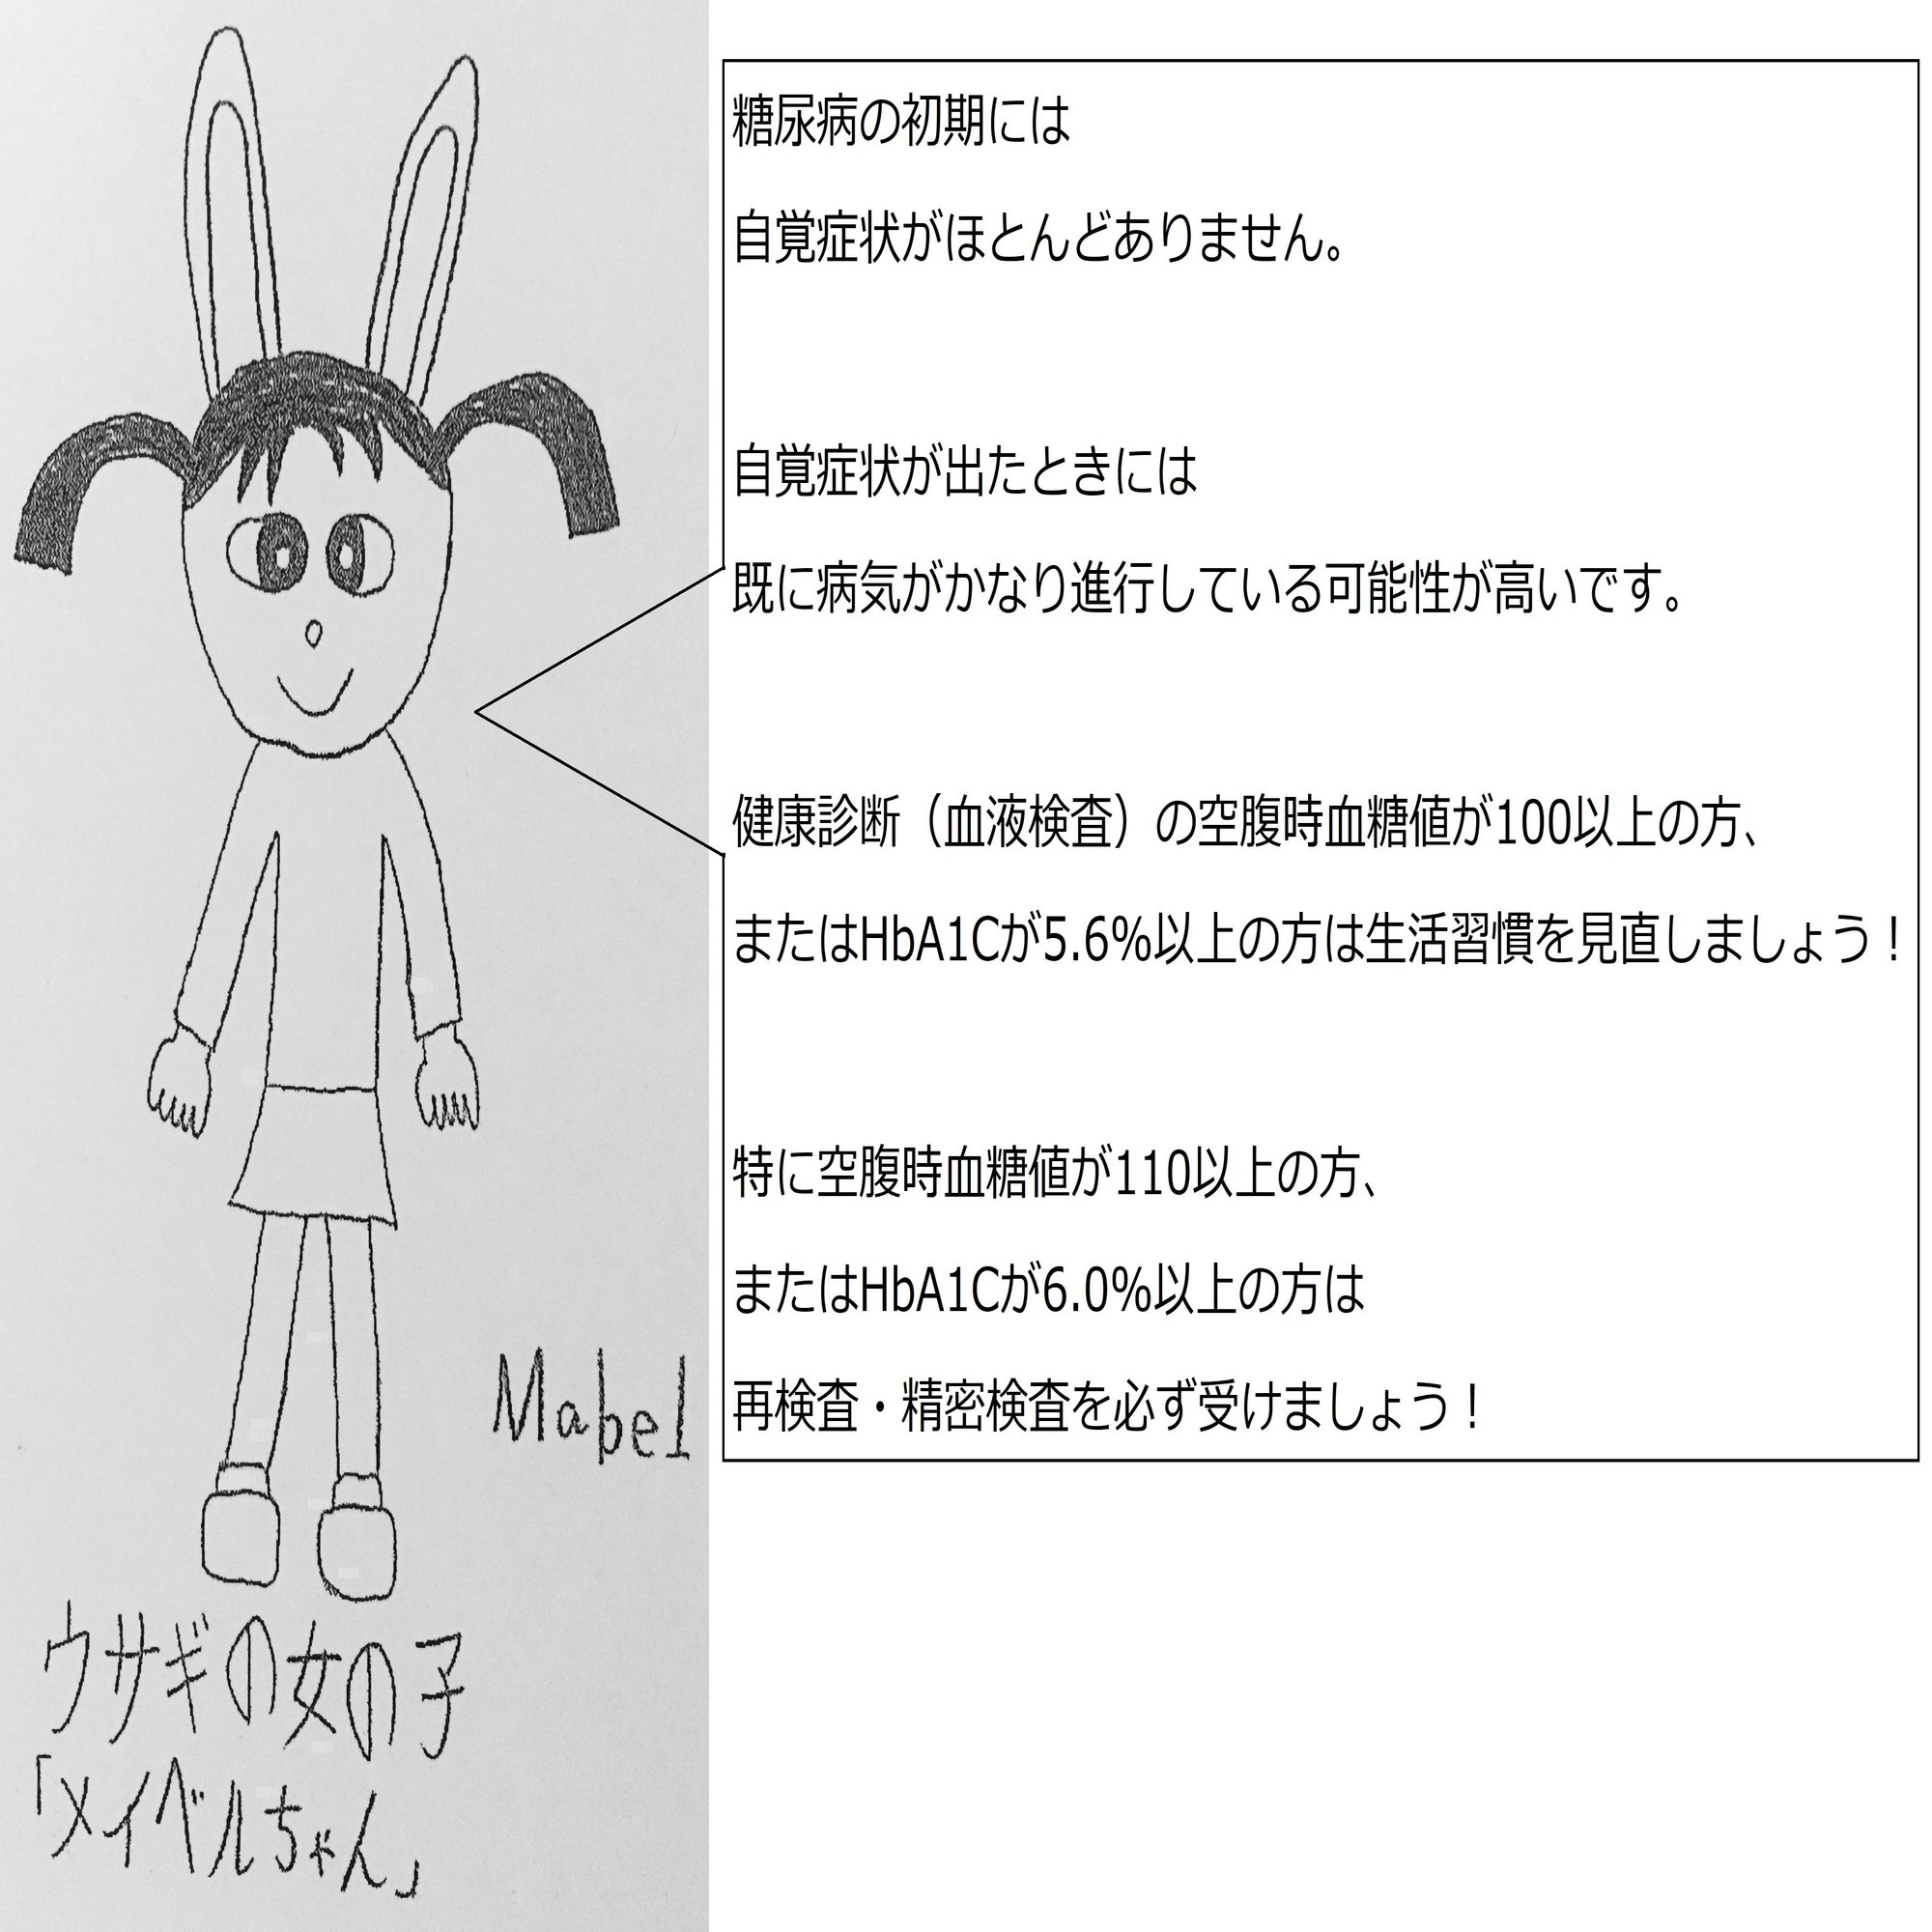 糖尿病の初期には
自覚症状がほとんどありません。
自覚症状が出たときには
既に病気がかなり進行している可能性が高いです。
健康診断（血液検査）の空腹時血糖値が100以上の方、
またはHbA1Cが5.6%以上の方は生活習慣を見直しましょう！
特に空腹時血糖値が110以上の方、
またはHbA1Cが6.0%以上の方は
再検査・精密検査を必ず受けましょう！
Mabel
ウサギの女の子
「メイベルちゃん」